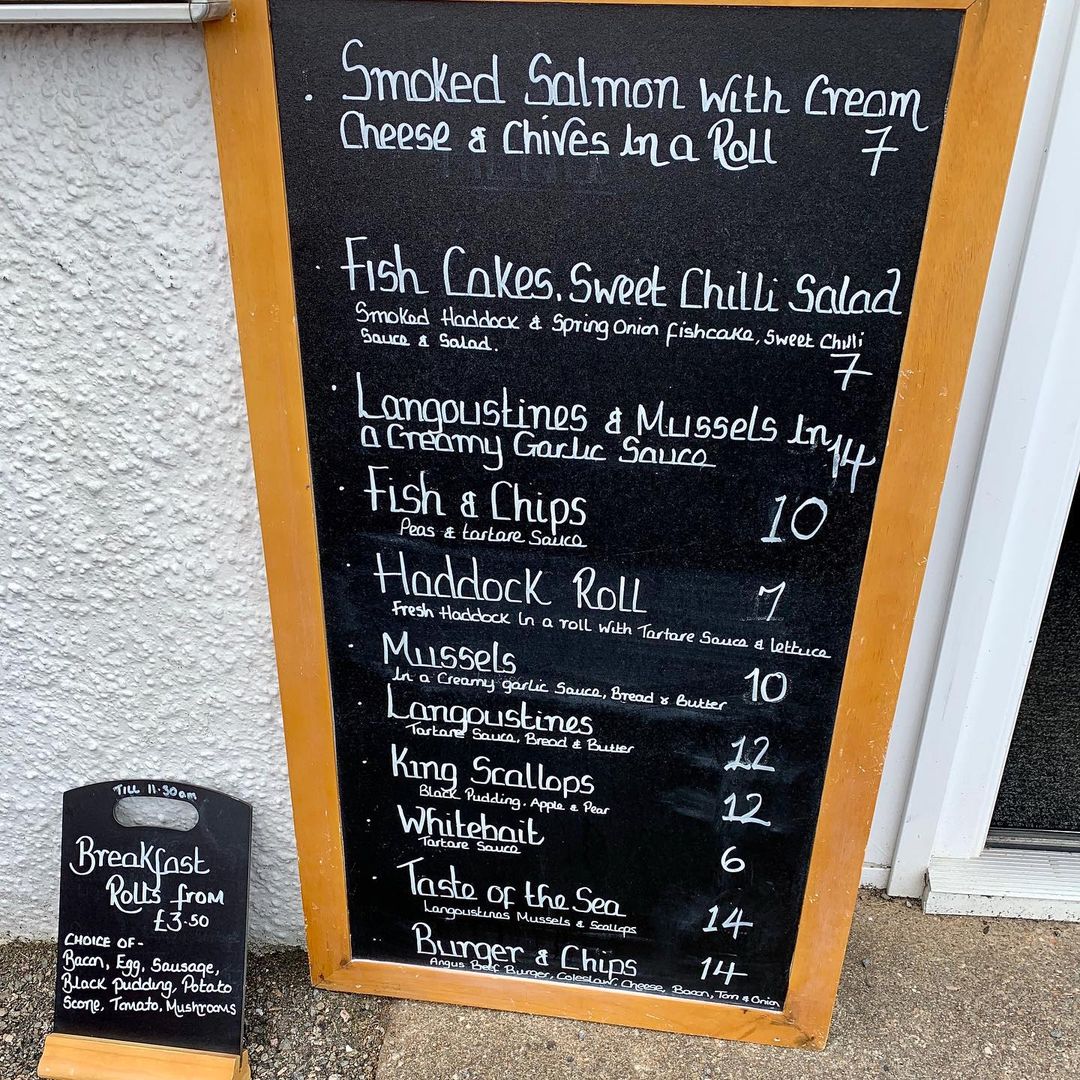 Smoked Salmon With Cream
Cheese & Chives In a Roll 7
Fish Cakes. Sweet Chilli Salad
Smoked Haddock & Spring Onion fishcake, Sweet Chilli
Sauce & Salad.
7
Langoustines & Mussels In
a Creamy Garlic Sauce 14
Fish & Chips 10
Peas & tartare Sauce
Haddock Roll 7
Fresh Haddock In a roll with Tartare Sauce & lettuce
Mussels 10
In a Creamy garlic Sauce, Bread & Butter
Langoustines 12
Tartare Sauce, Bread & Butter
King Scallops 12
Black Pudding, Apple & Pear
Whitebait 6
Tartare Sauce
Taste of the Sea 14
Langoustines Mussels & Scallops
Burger & Chips 14
Angus Beef Burger, Coleslaw, Cheese, Bacon, Tom & Onion
Till 11.30am
Breakfast
Rolls from
£3.50
CHOICE OF-
Bacon, Egg, Sausage,
Black Pudding, Potato
Scone, Tomato, Mushrooms